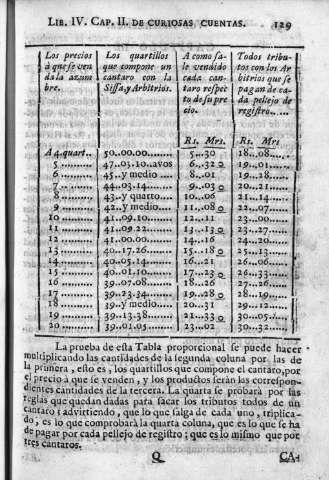 LIB. IV. CAP. II. DE CURIOSAS CUENTAS. 129
Los precios Los quartillos A como sa- Todos tribu-
à que se ven que compone un le vendido tos con los Ar
da la azum cantaro con la cada can- bitrios que se
bre. Sissa, y Arbitrios. taro respec pagan de ca-
to de su pre da pellejo de
cio. registro.....
Rs. Mrs. Rs. Mrs
A 4. quart.. 50..00.00...... 5...30 18..08....
5......... 47..03.10..avos 6...32 o 19...01....
6......... 45..y medio.... 8...01 19...28....
7......... 44..03.14...... 9...03 o 20...21....
8......... 43..y quarto... 10...08 21...14....
9......... 42..y medio.... 11...08 o 22...07....
10........ 41..09.10...... 12...11 23...00....
11........ 41..02.11...... 13...13 o 23...27....
12........ 41..00.00...... 14...16 24...20....
13........ 40..17.26...... 15...18 o 25...13....
14........ 40..05.14...... 16...21 26...06....
15........ 40..01.10...... 17...23 o 26...33....
16........ 39..07.08...... 18...26 27...26....
17........ 39..23.34...... 19...28 o 28...19....
18........ 39..y medio.... 20...31 29...12....
19........ 39..13.38...... 21...33 o 30...05....
20........ 39..01.05...... 23...02 30...32....
La prueba de esta Tabla proporcional se puede hacer
multiplicando las cantidades de la segunda coluna por las de
la primera, esto es, los quartillos que compone el cantaro, por
el precio à que se venden, y los productos seràn las correspon-
dientes cantidades de la tercera. La quarta se probarà por las
reglas que quedan dadas para sacar los tributos todos de un
cantaro: advirtiendo, que lo que salga de cada uno, triplica-
do, es lo que comprobarà la quarta coluna, que es lo que se ha
de pagar por cada pellejo de registro; que es lo mismo que por
tres cantaros.
Q CA-